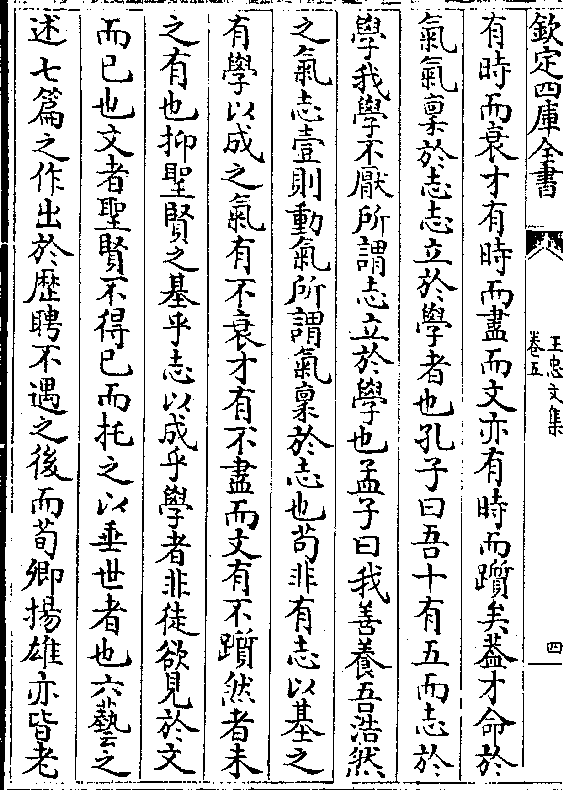 欽定四庫全書
王忠文集
卷五
四
有時而衰才有時而盡而文亦有時而躓矣葢才命於
氣氣稟於志志立於學者也孔子曰吾十有五而志於
學我學不厭所謂志立於學也孟子曰我善養吾浩然
之氣志壹則動氣所謂氣稟於志也苟非有志以基之
有學以成之氣有不衰才有不盡而文有不躓然者未
之有也抑聖賢之基乎志以成乎學者非徒欲見於文
而已也文者聖賢不得已而托之以垂世者也六藝之
述七篇之作出於歴聘不遇之後而荀卿揚雄亦皆老